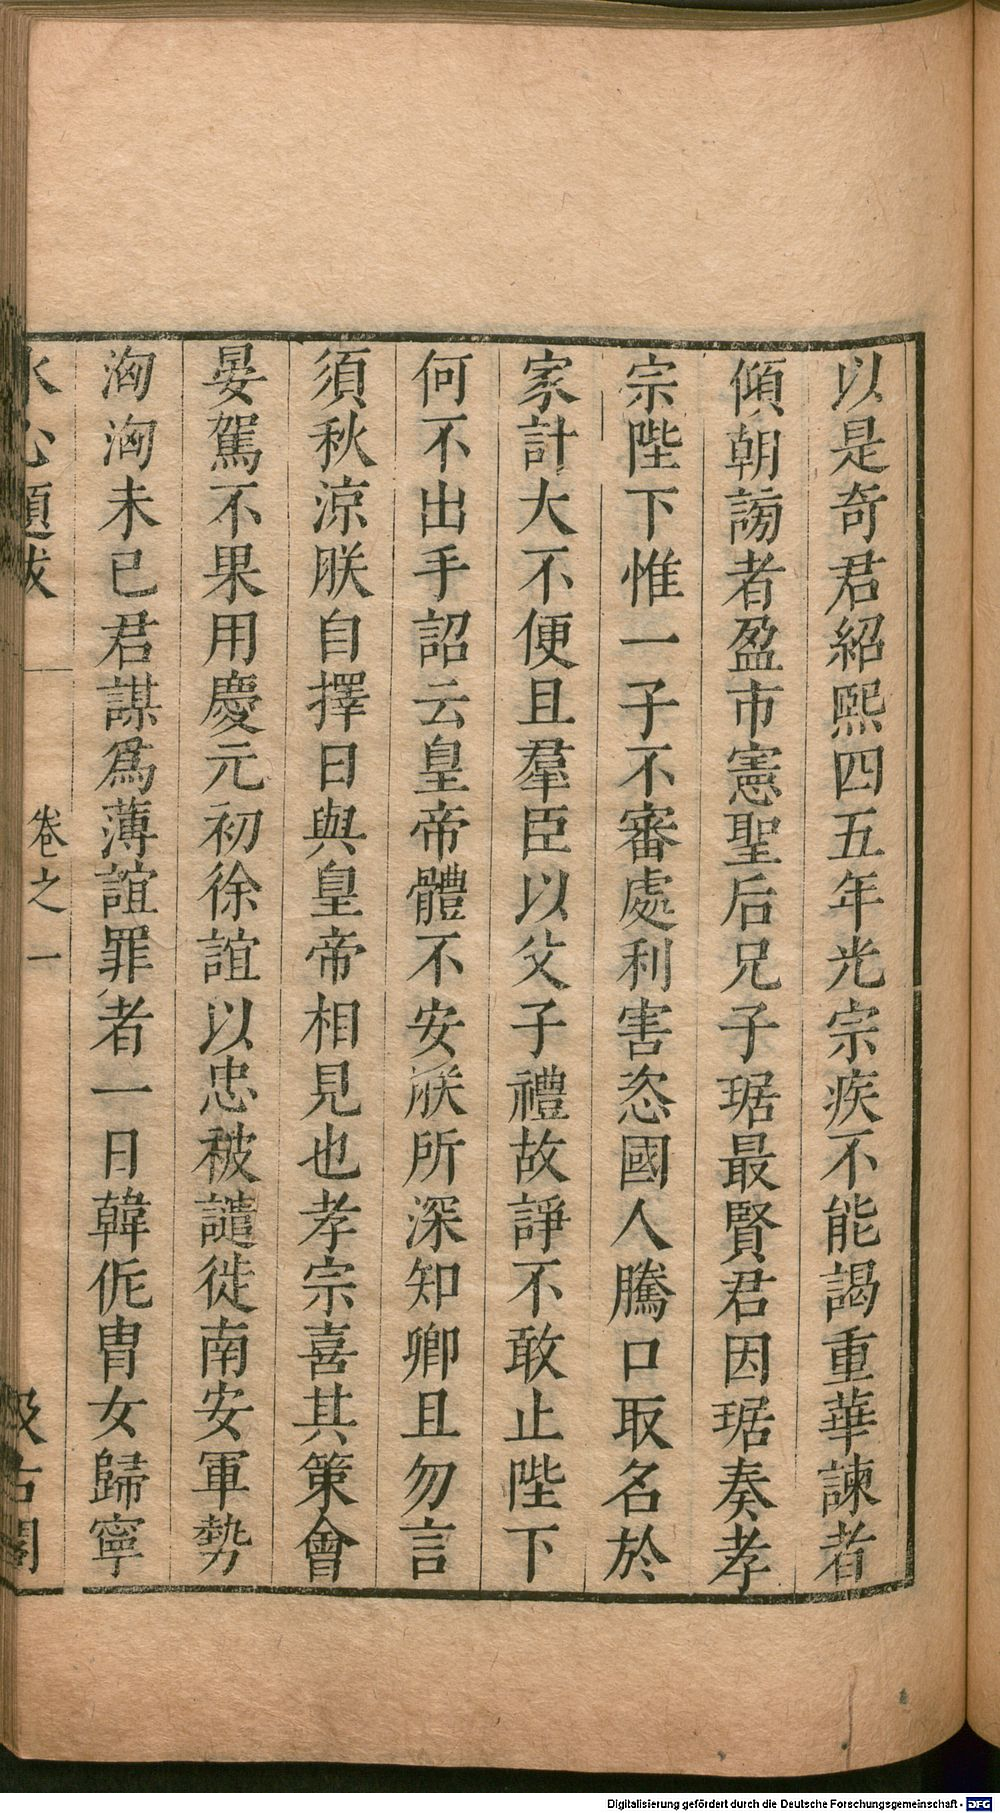 以是奇君紹熙四五年光宗疾不能謁重華諫者
傾朝謗者盈市憲聖后兄子琚最賢君因琚奏孝
宗陛下惟一子不審處利害恣國人騰口取名於
家計大不便且羣臣以父子禮故諍不敢止陛下
何不出手詔云皇帝體不安朕所深知卿且勿言
須秋涼朕自擇日與皇帝相見也孝宗喜其策會
晏駕不果用慶元初徐誼以忠被譴徙南安軍勢
洶洶未已君謀爲薄誼罪者一日韓侂冑女歸寧
水心題跋 卷之一 汲古閣
Digitalisierung gefördert durch die Deutsche Forschungsgemeinschaft - DFG